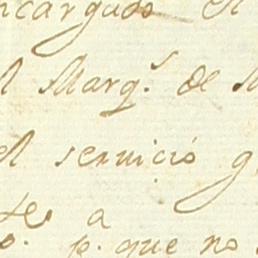 encargado el
el Marq.s de M
el servicio g
te a
o. p. que no